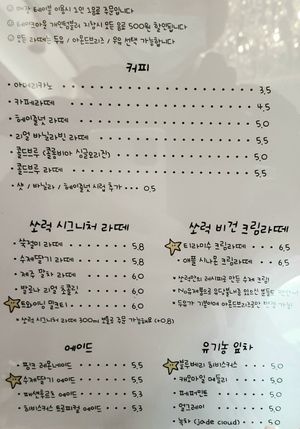 매장 테이블 이용시 1인 1음료 주문입니다
테이크아웃 개인텀블러 지참시 모든 음료 500원 할인됩니다
모든 라떼는 두유 / 아몬드브리즈 / 우유 선택 가능합니다
커피
아메리카노 3.5
카페라떼 4.5
헤이즐넛 라떼 5.0
리얼 바닐라빈 라떼 5.5
콜드브루 (콜롬비아 싱글오리진) 5.0
콜드브루 라떼 5.5
샷 / 바닐라 / 헤이즐넛 시럽 추가 --- 0.5
쏘럭 시그니처 라떼
쑥절미 라떼 5.8
수제딸기 라떼 5.8
제주 말차 라떼 6.0
발로나 리얼 초콜릿 6.0
트와이닝 밀크티 6.0
* 쏘럭 시그니처 라떼 300ml 보틀로 주문 가능해요 (+0.8)
쏘럭 비건 크림라떼
티라미수 크림라떼 6.5
애플 시나몬 크림라떼 6.5
쏘럭만의 레시피로 만든 수제 크림!
No유제품으로 유당불내증 있으신 분들도
두유가 기본이며 아몬드브리즈로 변경 가능
에이드
핑크 레몬에이드 5.5
수제딸기 에이드 5.5
패션후르츠 에이드 5.3
히비스커스 트로피컬 에이드 5.3
유기농 잎차
블루베리 히비스커스 5.0
캐모마일 메들리 5.0
페퍼민트 5.0
얼그레이 5.0
녹차 (jade cloud) 5.0